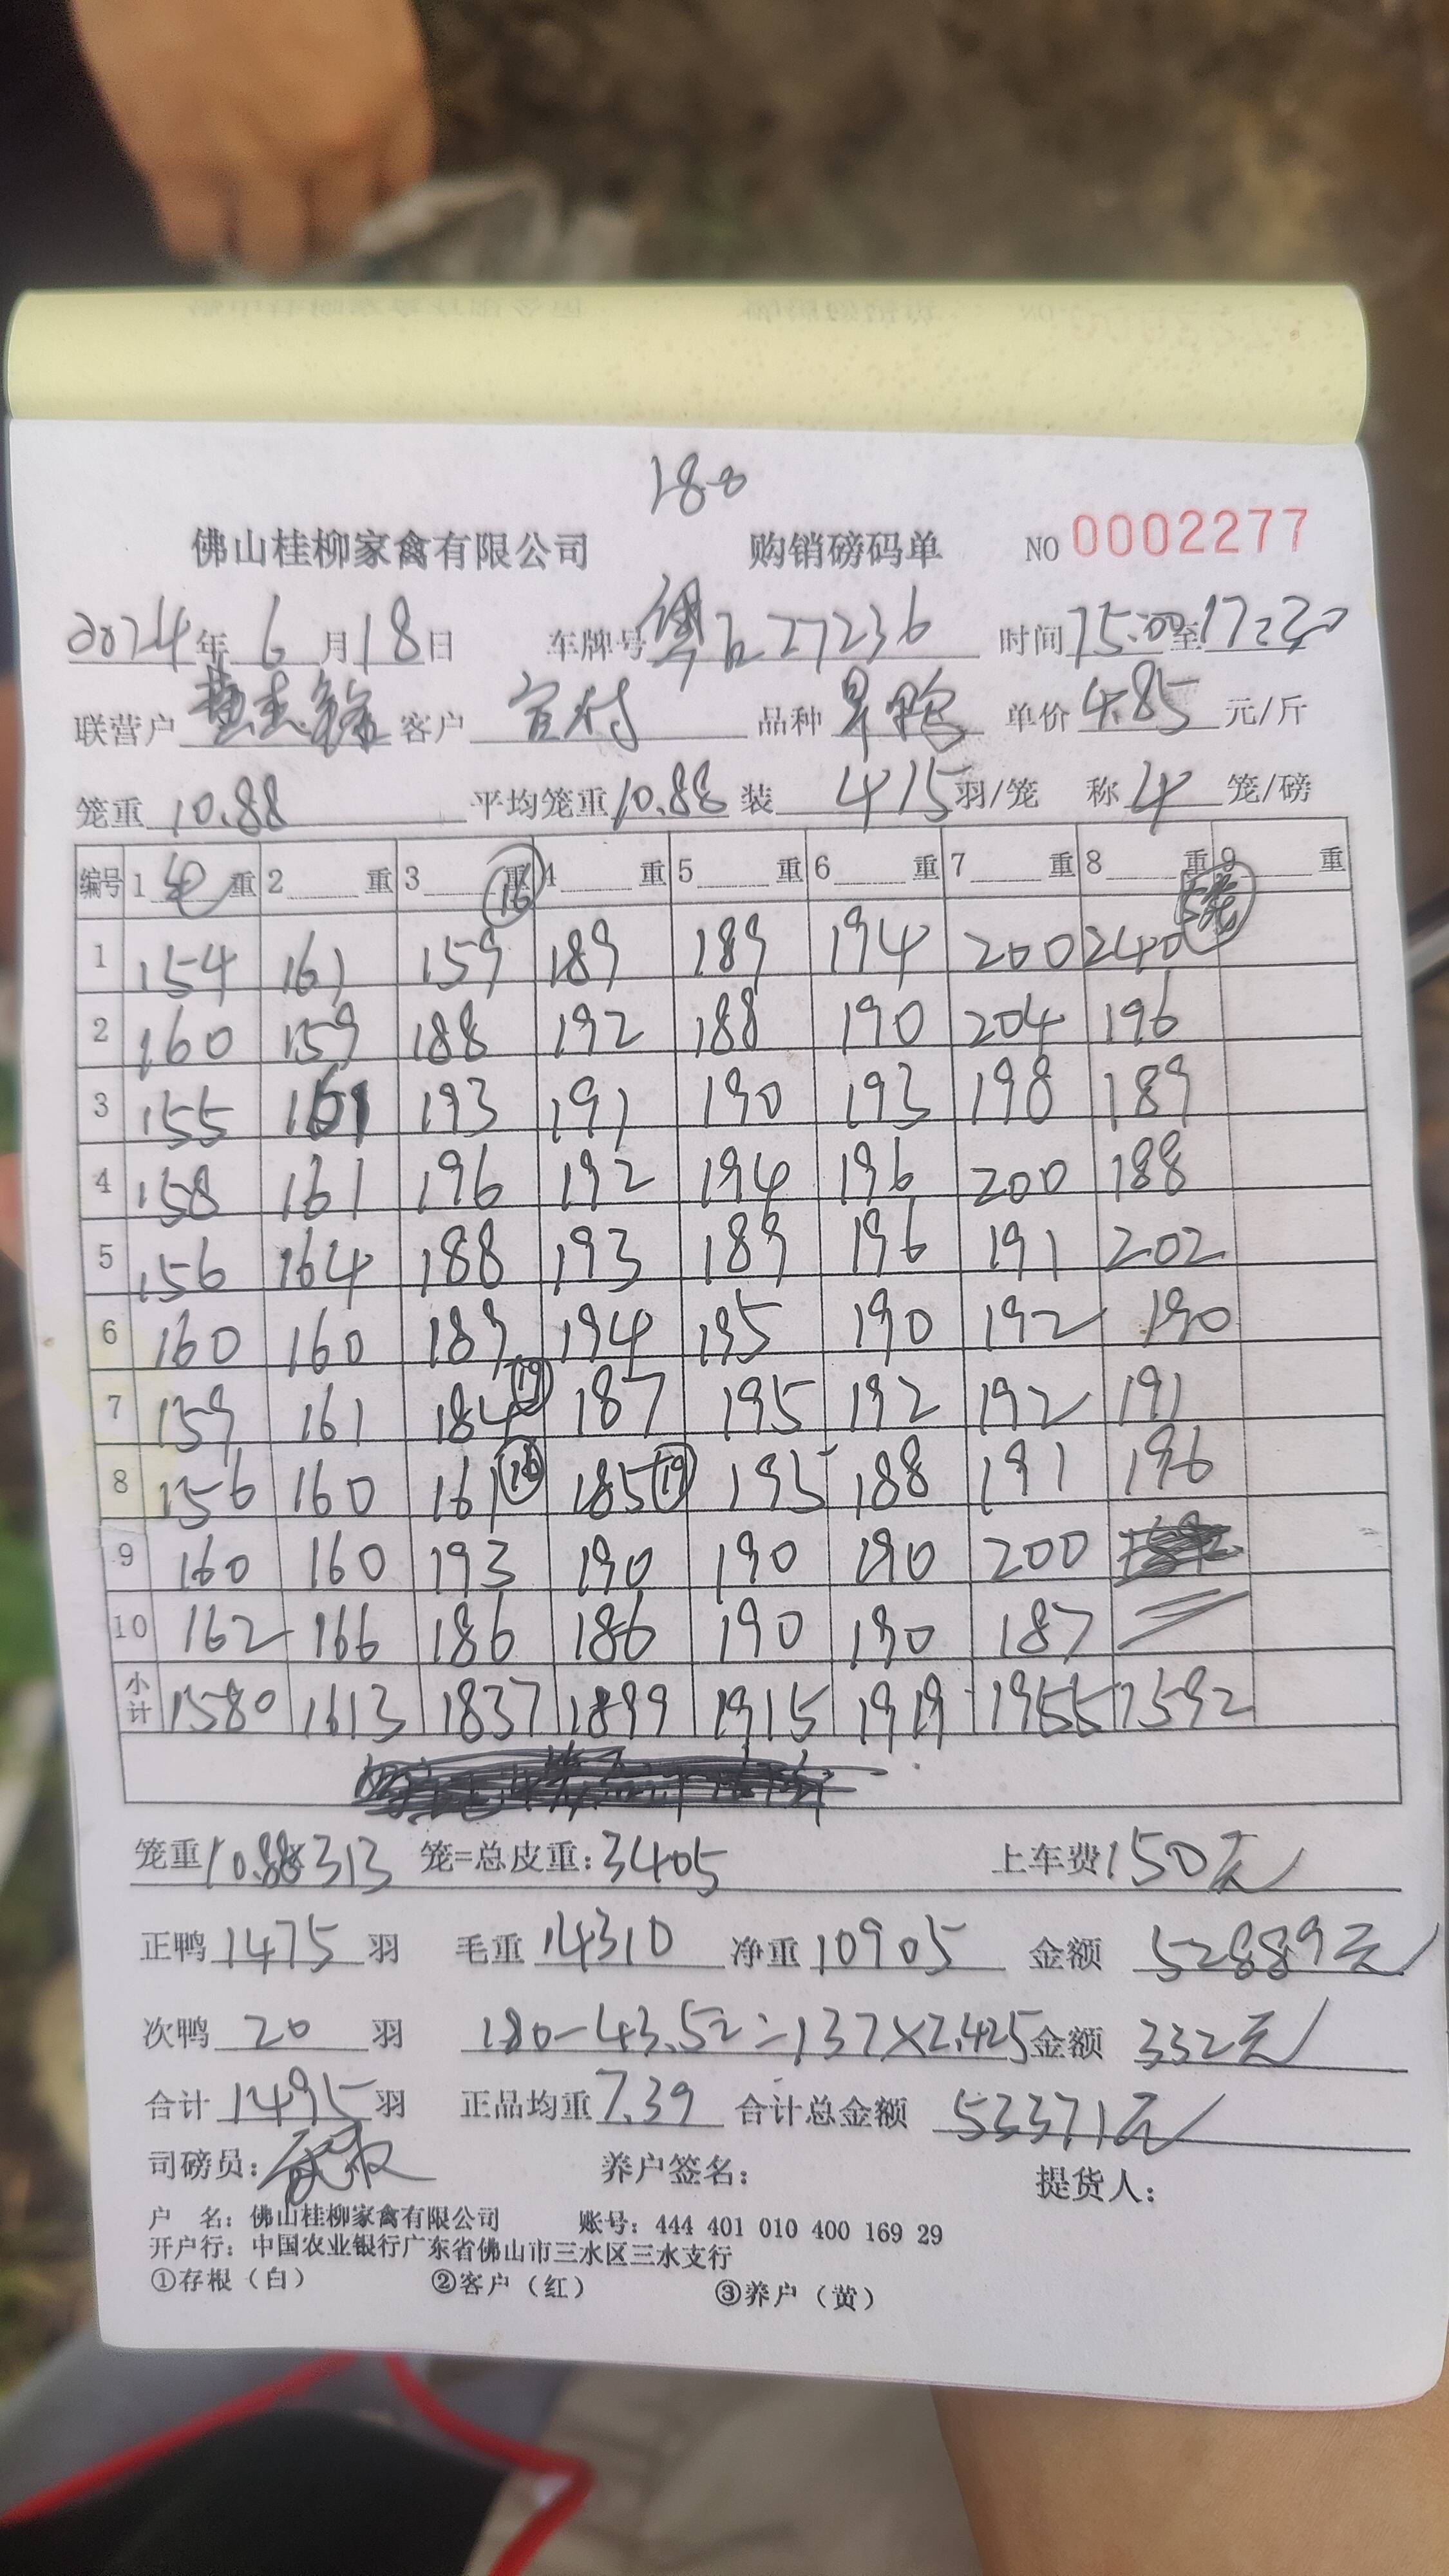 180
佛山桂柳家禽有限公司 购销磅码单 NO 0002277
2024年 6月18日 车牌号 粤 27236 时间 15:00至17:30
联营户 客户 品种 单价 4.85 元/斤
笼重 10.88 平均笼重 10.88 装 415羽/笼 称 4 笼/磅
编号 1 重 2 重 3 重 4 重 5 重 6 重 7 重 8 重 9 重
16
1 154 161 159 189 189 194 200 240
2 160 159 188 192 188 190 204 196
3 155 161 193 191 190 193 198 189
4 158 161 196 192 194 196 200 188
5 156 164 188 193 189 196 191 202
6 160 160 189 194 195 190 192 190
7 159 161 184 19 187 195 192 192 191
8 156 160 161 16 185 19 195 188 191 196
9 160 160 193 190 190 190 200
10 162 166 186 186 190 190 187
小计 1580 1613 1837 1899 1915 1919 1955 1592
笼重 10.88×313 笼=总皮重: 3405 上车费 150元
正鸭 1475 羽 毛重 14310 净重 10905 金额 52889元
次鸭 20 羽 180-43.52=137×2.425 金额 332元
合计 1495 羽 正品均重 7.39 合计总金额 53371元
司磅员: 养户签名: 提货人:
户 名: 佛山桂柳家禽有限公司 账号: 444 401 010 400 169 29
开户行: 中国农业银行广东省佛山市三水区三水支行
①存根（白） ②客户（红） ③养户（黄）